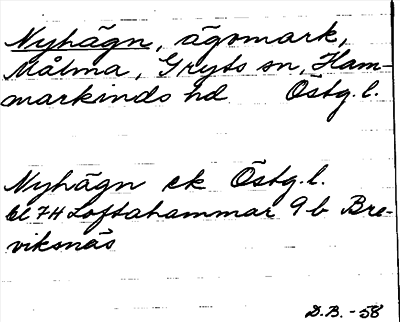 Nyhägn, ägomark,
Målma, Gryts sn, Ham-
markinds hd Östg. l.
Nyhägn ek Östg. l.
bl 74 Loftahammar 9 b Bre-
viksnäs
D.B. - 58